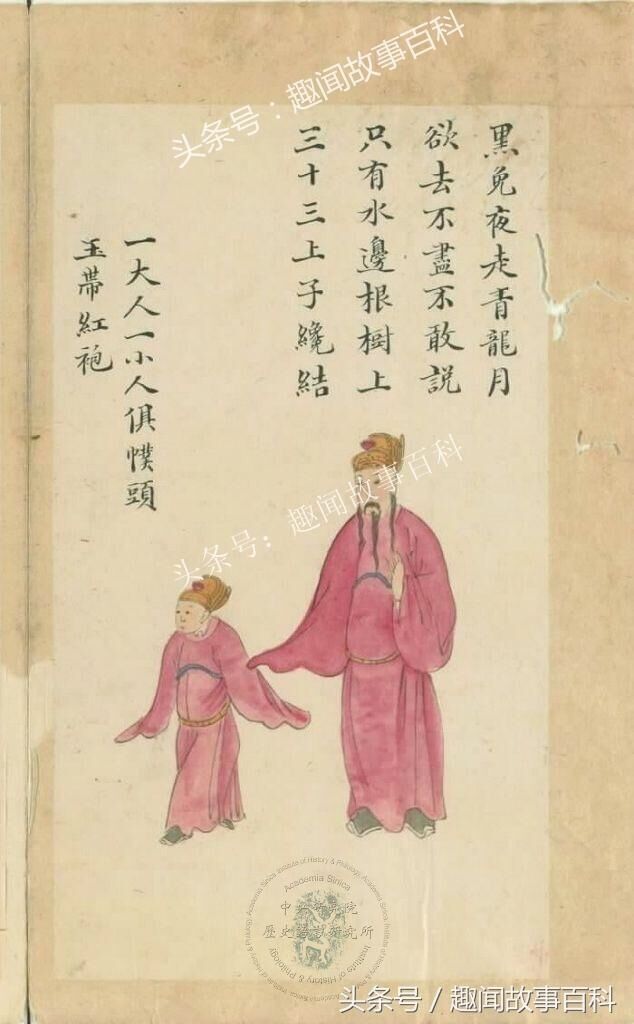 头条号：趣闻故事百科
黑免夜走青龍月
欲去不盡不敢説
只有水邊根樹上
三十三上子纔結
一大人一小人俱幞頭
玉帶紅袍
头条号：趣闻故事百科
Academia Sinica
中央研究院
歷史語言研究所
Institute of History & Philology
头条号 / 趣闻故事百科